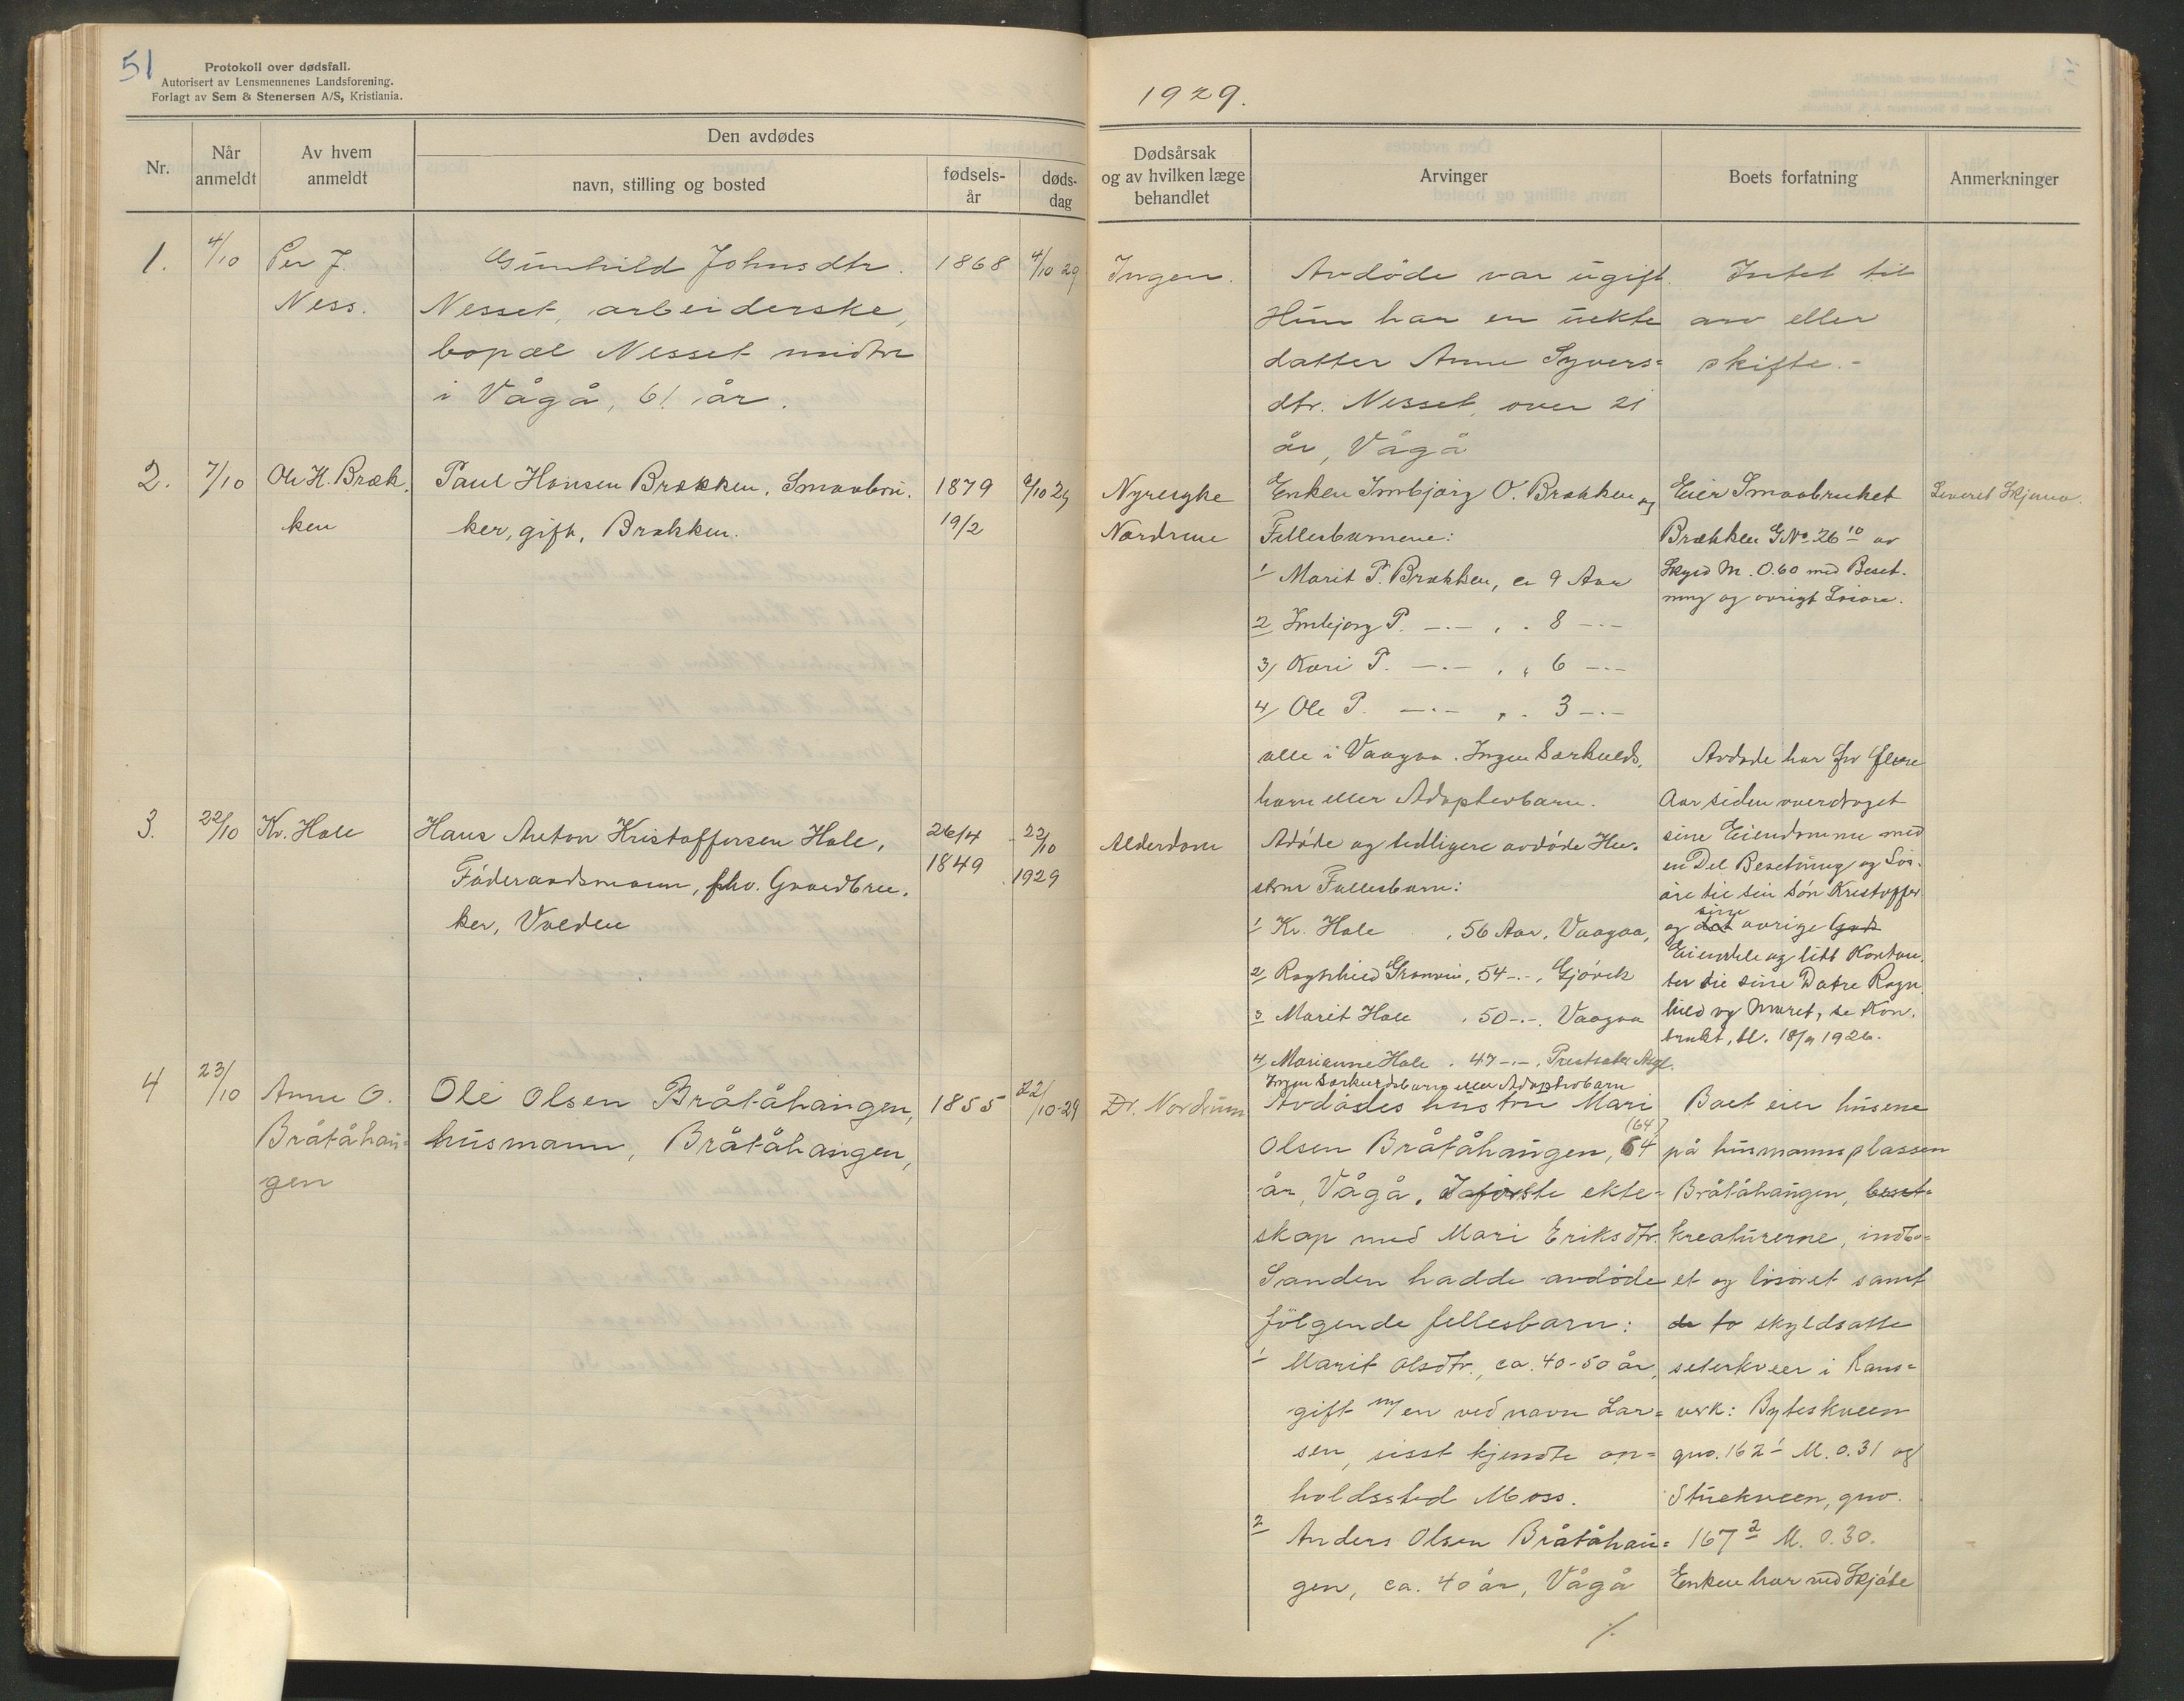 51
Protokoll over dødsfall.
Autorisert av Lensmennenes Landsforening.
Forlagt av Sem & Stenersen A/S, Kristiania.
Nr.
Når anmeldt
Av hvem anmeldt
Den avdødes
navn, stilling og bosted
fødsels-år
døds-dag
1.
4/10
Per J.
Ness.
Gunhild Johnsdtr.
Nesset, arbeiderske,
bopæl Nesset midtre
i Vågå, 61 år.
1868
4/10 29
2.
7/10
Ole H. Bræk-
ken
Paul Hansen Brækken, Smaabru-
ker, gift, Brækken.
1879
19/2
6/10 29
3.
22/10
Kr. Hole
Hans Anton Kristoffersen Hole,
Føderaadsmann, fhv. Gaardbru-
ker, Volden
26/4
1849
22/10
1929
4
23/10
Anne O.
Bråtåhau-
gen
Ole Olsen Bråtåhaugen,
husmann, Bråtåhaugen,
1855
22/10-29
1929.
Dødsårsak
og av hvilken læge
behandlet
Arvinger
Boets forfatning
Anmerkninger
Ingen.
Avdøde var ugift.
Hun har en uekte
datter Anne Syvers=
dtr. Nesset, over 21
år, Vågå
Intet til
arv eller
skifte.-
Nyresyke
Nordrum
Enken Imbjørg O. Brækken og
Fellesbarnene:
1 Marit P. Brækken, ca 9 Aar
2 Imbjørg P. -.- , . 8 -.-
3/ Kari P. -.- , , 6 -.-
4/ Ole P. -.- , . 3 -.-
alle i Vaagaa. Ingen Særkulds-
barn eller Adoptivbarn.
Eier Smaabruket
Brækken GNo 26 10 av
Skyld M. 0.60 med Beset-
ning og øvrigt Løsøre.
Leveret Skjema.
Alderdom
Avdøde og tidligere avdøde Hu-
strus Fællesbarn:
1 Kr. Hole , 56 Aar, Vaagaa,
2 Ragnhild Granvin, 54 -.-, Gjøvik
3 Marit Hole , 50 -.-, Vaagaa
4/ Marianne Hole , 47 -.-, Prestsæter Asyl.
Ingen Særkuldsbarn eller Adoptivbarn
Avdøde har for flere
Aar siden overdraget
sine Eiendomme med
en Del Besetning og Løs-
øre til sin Søn Kristoffer
og det sine øvrige Gods
Eiendele og litt Kontan-
ter til sine Døtre Ragn-
hild og Marit, se Kon-
trakt, tl. 18/9 1926.
Dr. Nordrum
Avdødes hustru Mari
Olsen Bråtåhaugen, 64 (64)
år, Vågå. I første ekte=
skap med Mari Eriksdtr.
Sanden hadde avdøde
følgende fellesbarn:
1 Marit Olsdtr., ca. 40-50 år,
gift m/en ved navn Lar=
sen, sisst kjendte op=
holdssted Moss.
2 Anders Olsen Bråtåhau=
gen, ca. 40 år, Vågå
Boet eier husene
på husmannsplassen
Bråtåhaugen, beset=
kreaturerne, indbo=
et og løsøret samt
de to skyldsatte
seterkveer i Rans=
verk: Byteskveen
gno. 162 1 M. 0.31 og
Stuekveen, gno.
167 2 M. 0.30.
Enken har ved Skjøte
%